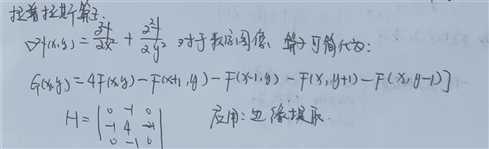 拉普拉斯算子:
▽²f(x,y) = ∂²f/∂x² + ∂²f/∂y² 对于数字图像, 算子可简化为:
G(x,y) = 4F(x,y) - F(x+1,y) - F(x-1,y) - F(x,y+1) - F(x,y-1)]
H = | 0 -1 0 |
| -1 4 -1 | 应用: 边缘提取.
| 0 -1 0 |